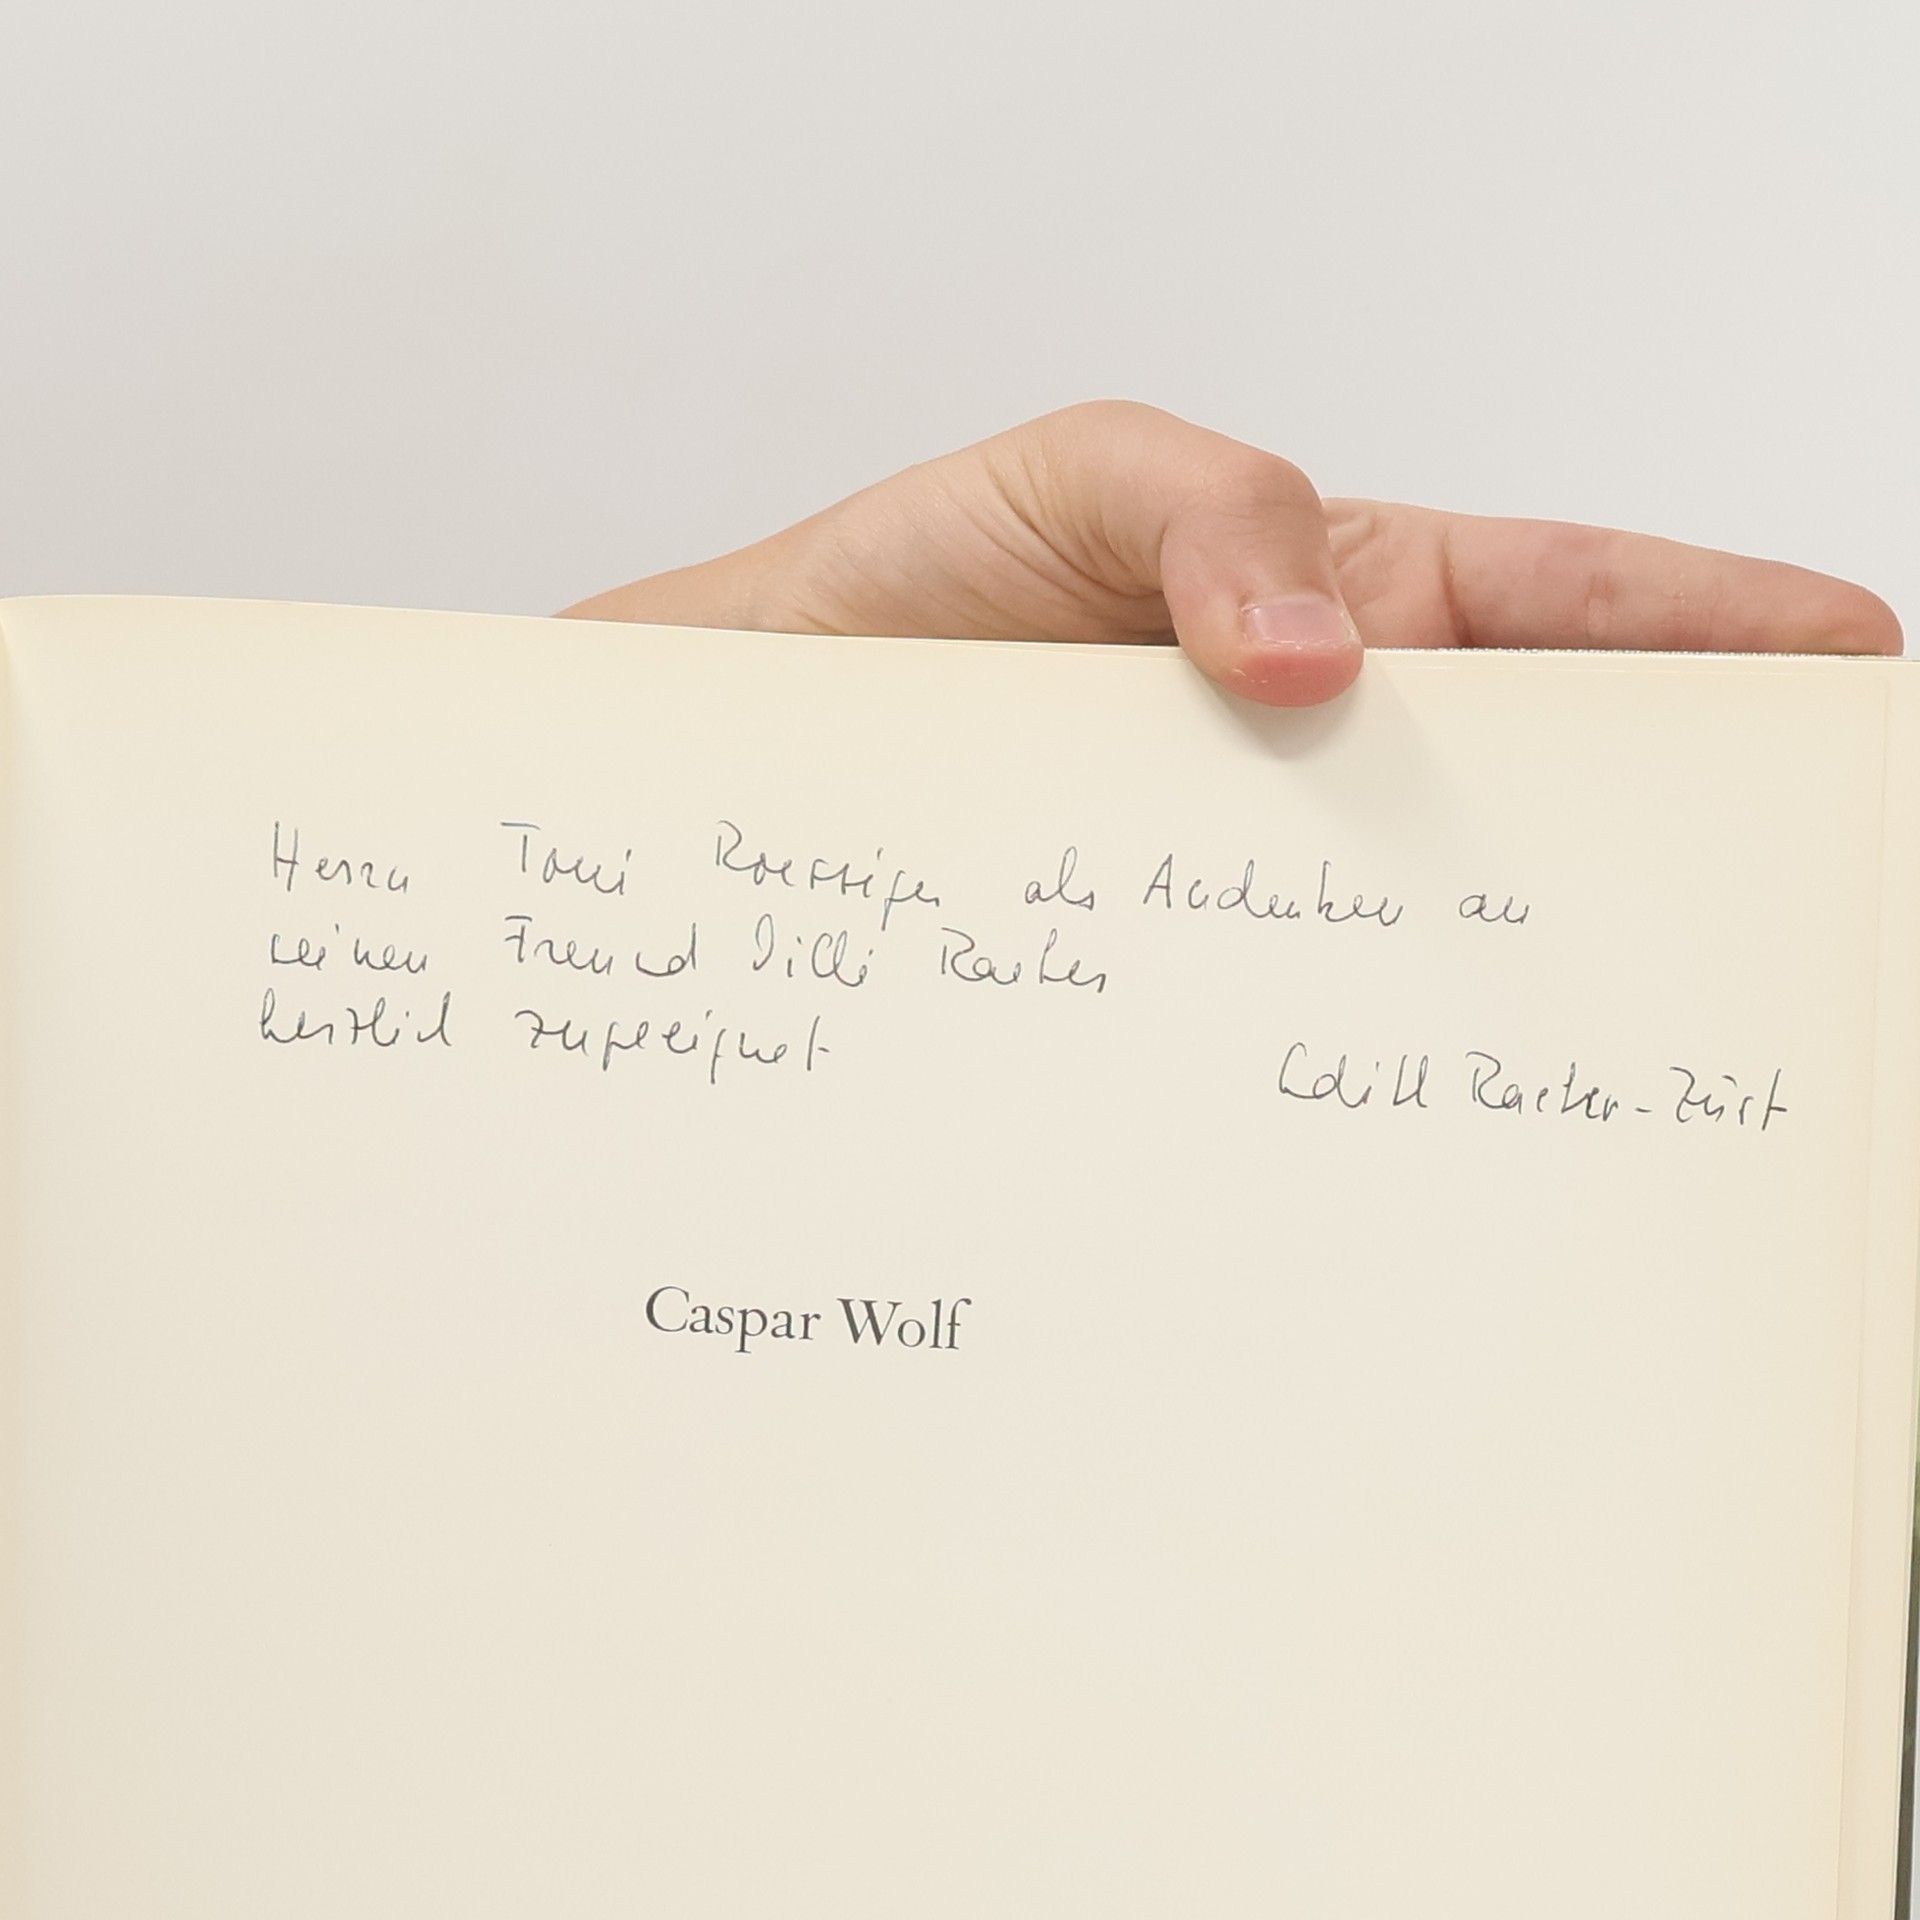 Herrn Toni Roessiger als Andenken an
seinen Freund Willi Raeber
herzlich zugeeignet
Edith Raeber-Züst
Caspar Wolf